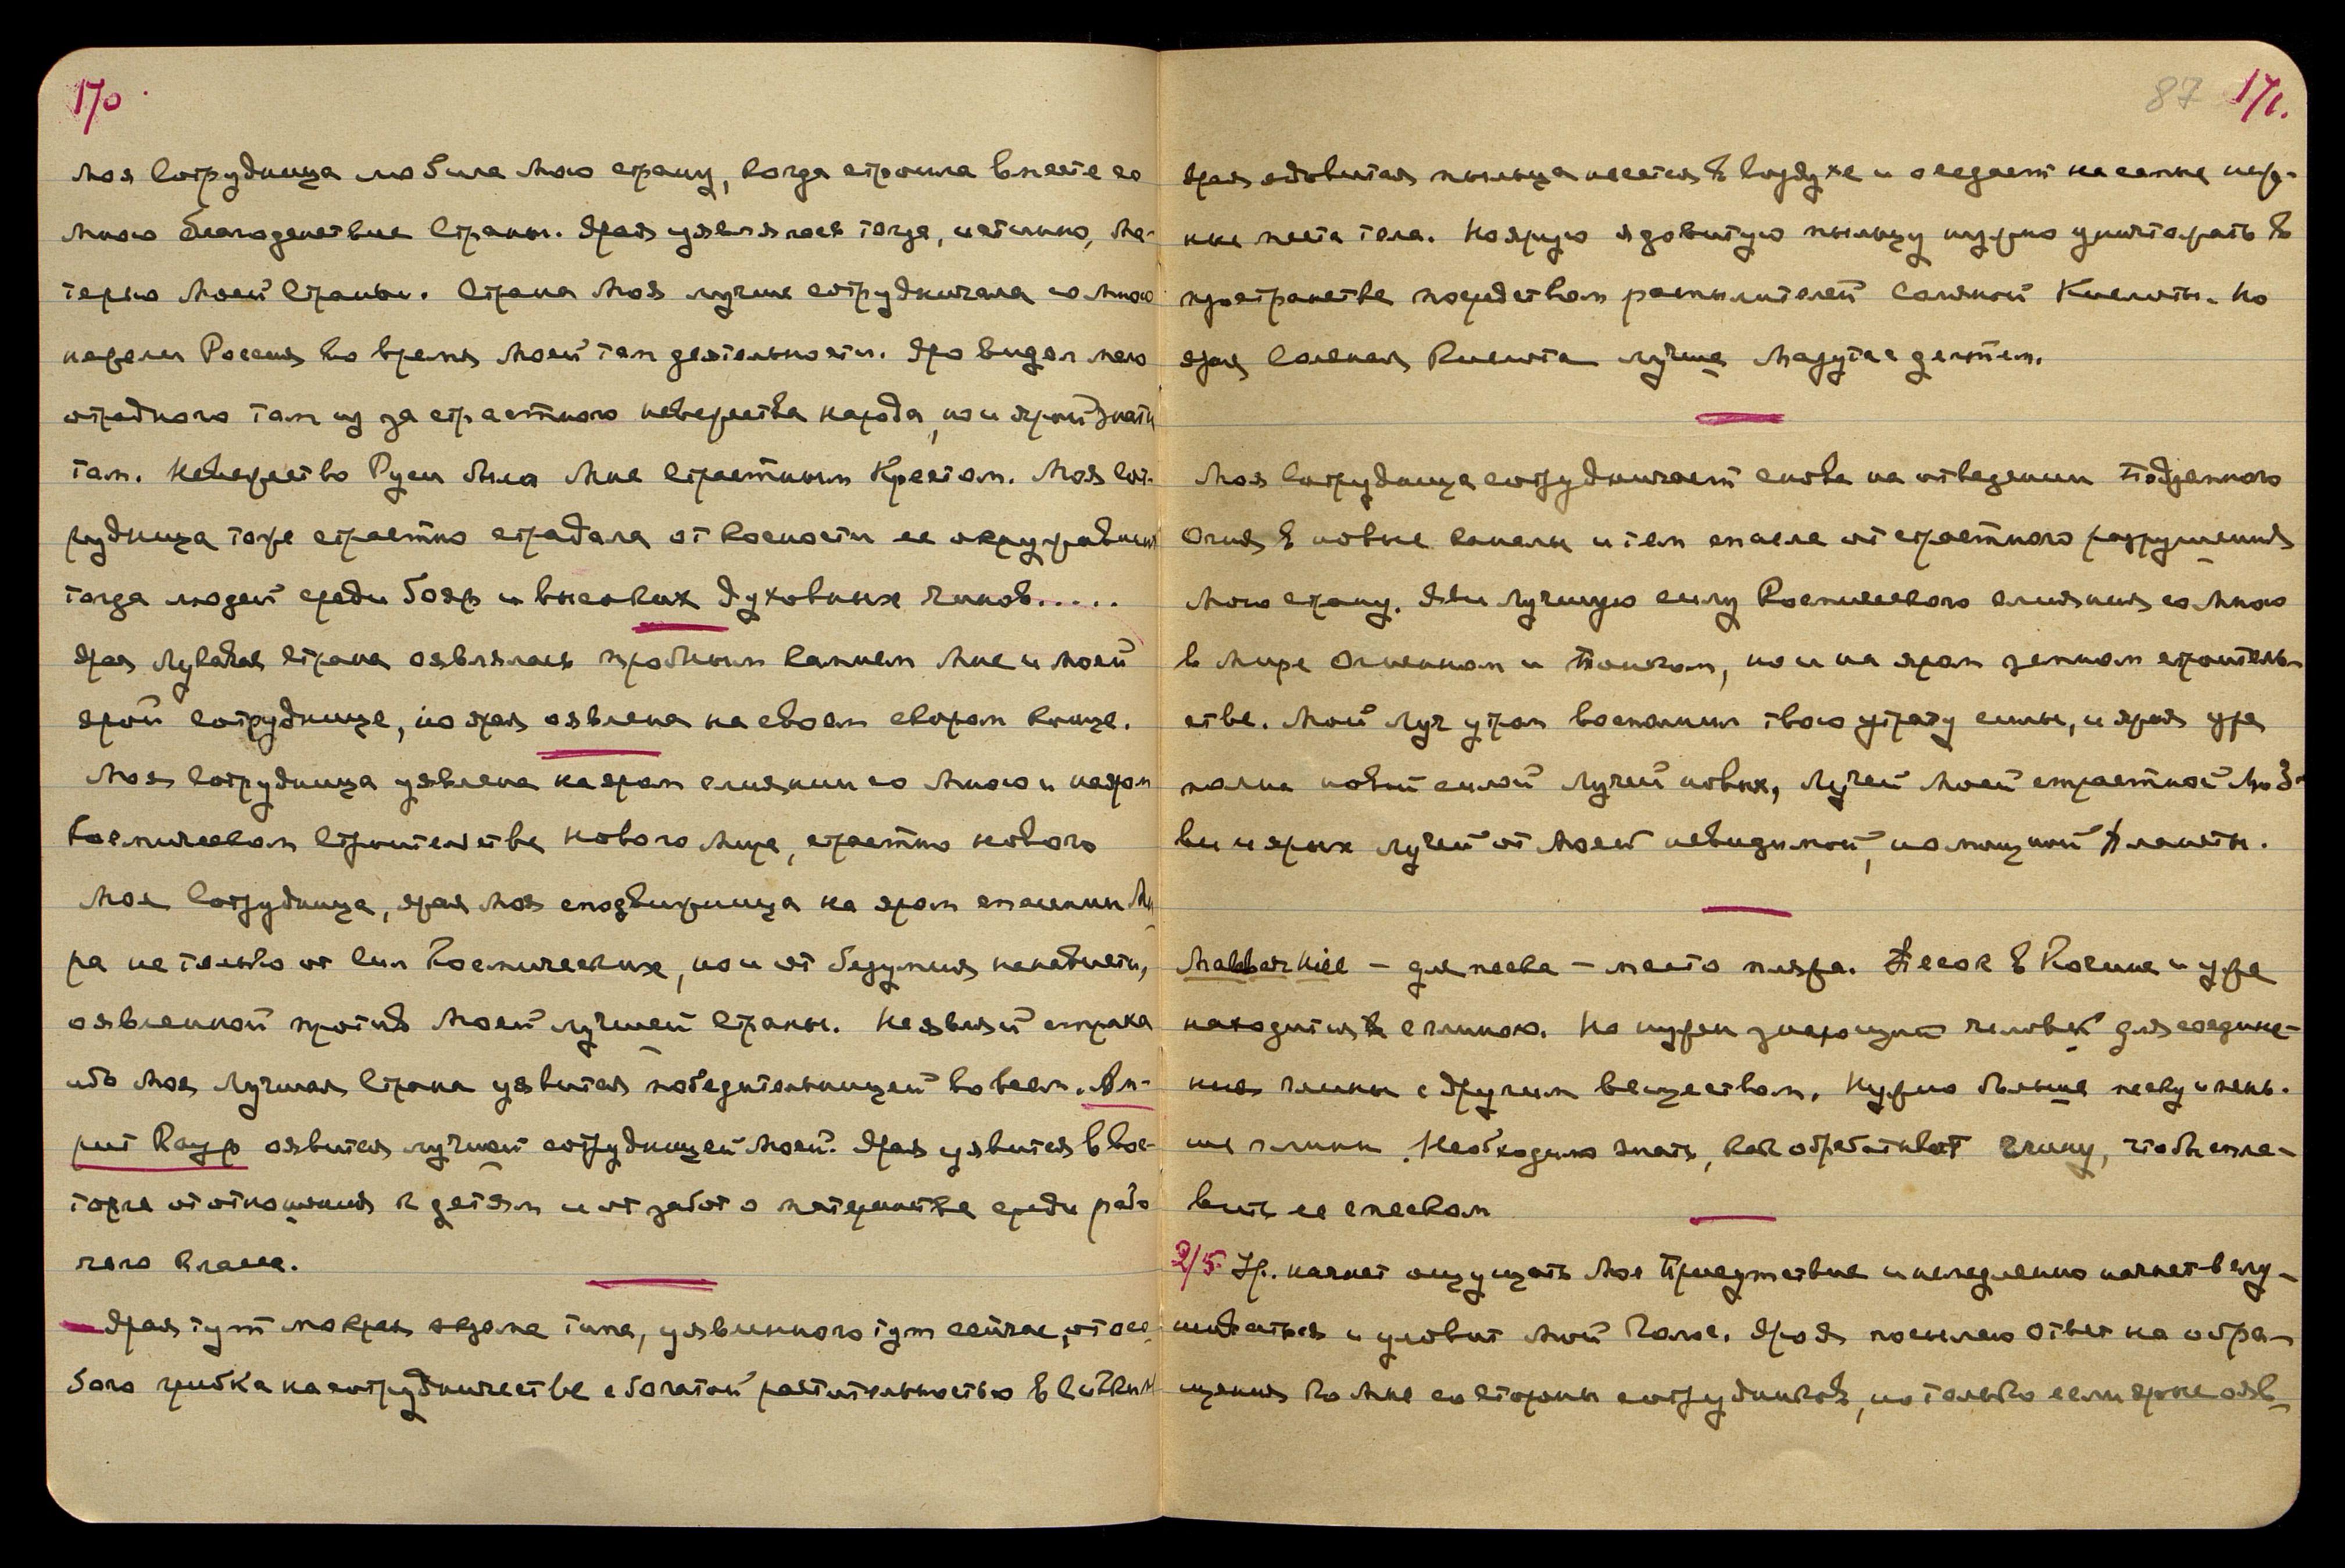 170
Моя Сотрудница любила Мою страну, когда строила вместе со
Мною благоденствие Страны. Ярая уявлялась тогда, истинно, Ма-
терью Моей Страны. Страна Моя лучше сотрудничала со Мною
нежели Россия во время Моей там деятельности. Яро видел мало
отрадного там из за страстного невежества народа, но и ярой знати
там. Невежество Руси было Мне страстным Крестом. Моя Сот-
рудница тоже страстно страдала от косности ее окружавших
тогда людей среди бояр и высоких духовных чинов.....
Ярая Лукавая Страна оявлялась пробным камнем Мне и Моей
ярой сотруднице, но ярая оявлена на своем скором конце.
Моя Сотрудница уявлена на яром слиянии со Мною и на яром
Космическом Строительстве Нового Мира, страстно нового
Моя Сотрудница, ярая Моя сподвижница на яром спасении Ми-
ра не только от сил Космических, но и от безумия ненависти,
оявленной против Моей лучшей Страны. Не являй страха
ибо Моя Лучшая Страна уявится победительницей во всем. Ам-
рит Каур оявится лучшей сотрудницей Моей. Ярая уявится в вос-
торге от отношения к детям и от забот о материнстве среди рабо
чего класса.
Ярая тут мокрая экзема типа, уявленного тут сейчас, от осо-
бого грибка на сотрудничестве с богатой растительностью в Сиккиме
87 171.
Ярая ядовитая пыльца несется в воздухе и оседает на самые неж-
ные места тела. Но ярую ядовитую пыльцу нужно уничтожать в
пространстве посредством распылителей соляной Кислоты. Но
ярая Соляная Кислота лучше
Моя Сотрудница сотрудничает снова на отведении Подземного
Огня в новые каналы и тем спасла от страстного разрушения
Мою страну. Яви лучшую силу Космического слияния со Мною
в Мире Огненном и Тонком, но и на яром земном строитель-
стве. Мой Луч утром восполнил твою утрату силы, и ярая уже
полна новой силой Лучей новых, Лучей Моей страстной Люб-
ви и ярых лучей от Моей невидимой, но мощной Планеты.
Malabar Hill – для песка – место пляжа. Песок в Кочине и уже
находится с глиною. Но нужен знающий человек для соедине-
ния глины с другим веществом. Нужно больше песку и мень-
ше глины. Необходимо знать, как обработывают глину, чтобы спла-
вить ее с песком
2/5. Ур. начнет ощущать Мое Присутствие и немедленно начнет вслу-
шиваться и уловит Мой Голос. Яро Я посылаю Ответ на обра-
щения ко Мне со стороны сотрудников, но только если ярые ояв-